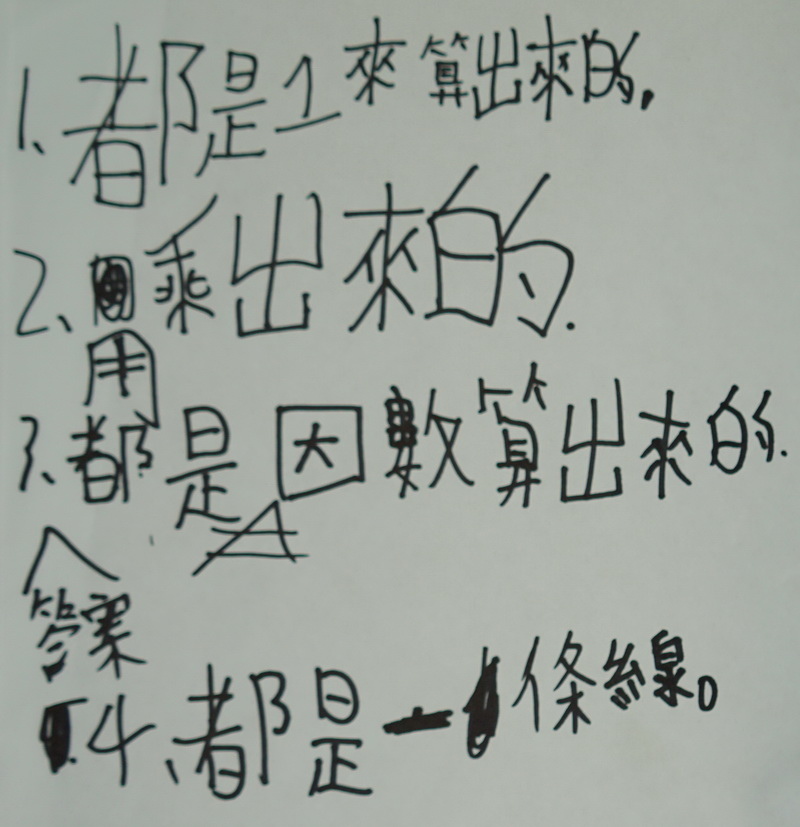 1、都是1來算出來的.
2、用乘出來的.
3、都是因數算出來的.
答案
4、都是一條線。